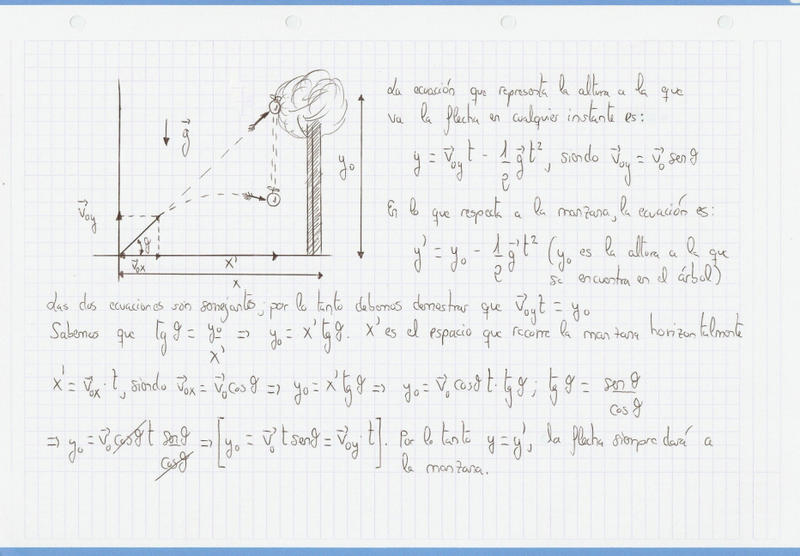 La ecuación que representa la altura a la que
va la flecha en cualquier instante es:
y = v⃗₀y t - 1/2 g⃗ t², siendo v⃗₀y = v⃗₀ sen θ
En lo que respecta a la manzana, la ecuación es:
y' = y₀ - 1/2 g⃗ t² (y₀ es la altura a la que
se encuentra en el árbol)
g⃗
y₀
v⃗₀y
θ
v⃗₀x
x'
x
Las dos ecuaciones son semejantes; por lo tanto debemos demostrar que v⃗₀y t = y₀
Sabemos que tg θ = y₀/x' => y₀ = x' tg θ. x' es el espacio que recorre la manzana horizontalmente
x' = v⃗₀x · t, siendo v⃗₀x = v⃗₀ cos θ => y₀ = x' tg θ => y₀ = v⃗₀ cos θ t · tg θ; tg θ = sen θ/cos θ
=> y₀ = v⃗₀ cos θ t sen θ/cos θ => [y₀ = v⃗₀ t sen θ = v⃗₀y · t]. Por lo tanto y = y', la flecha siempre dará a
la manzana.